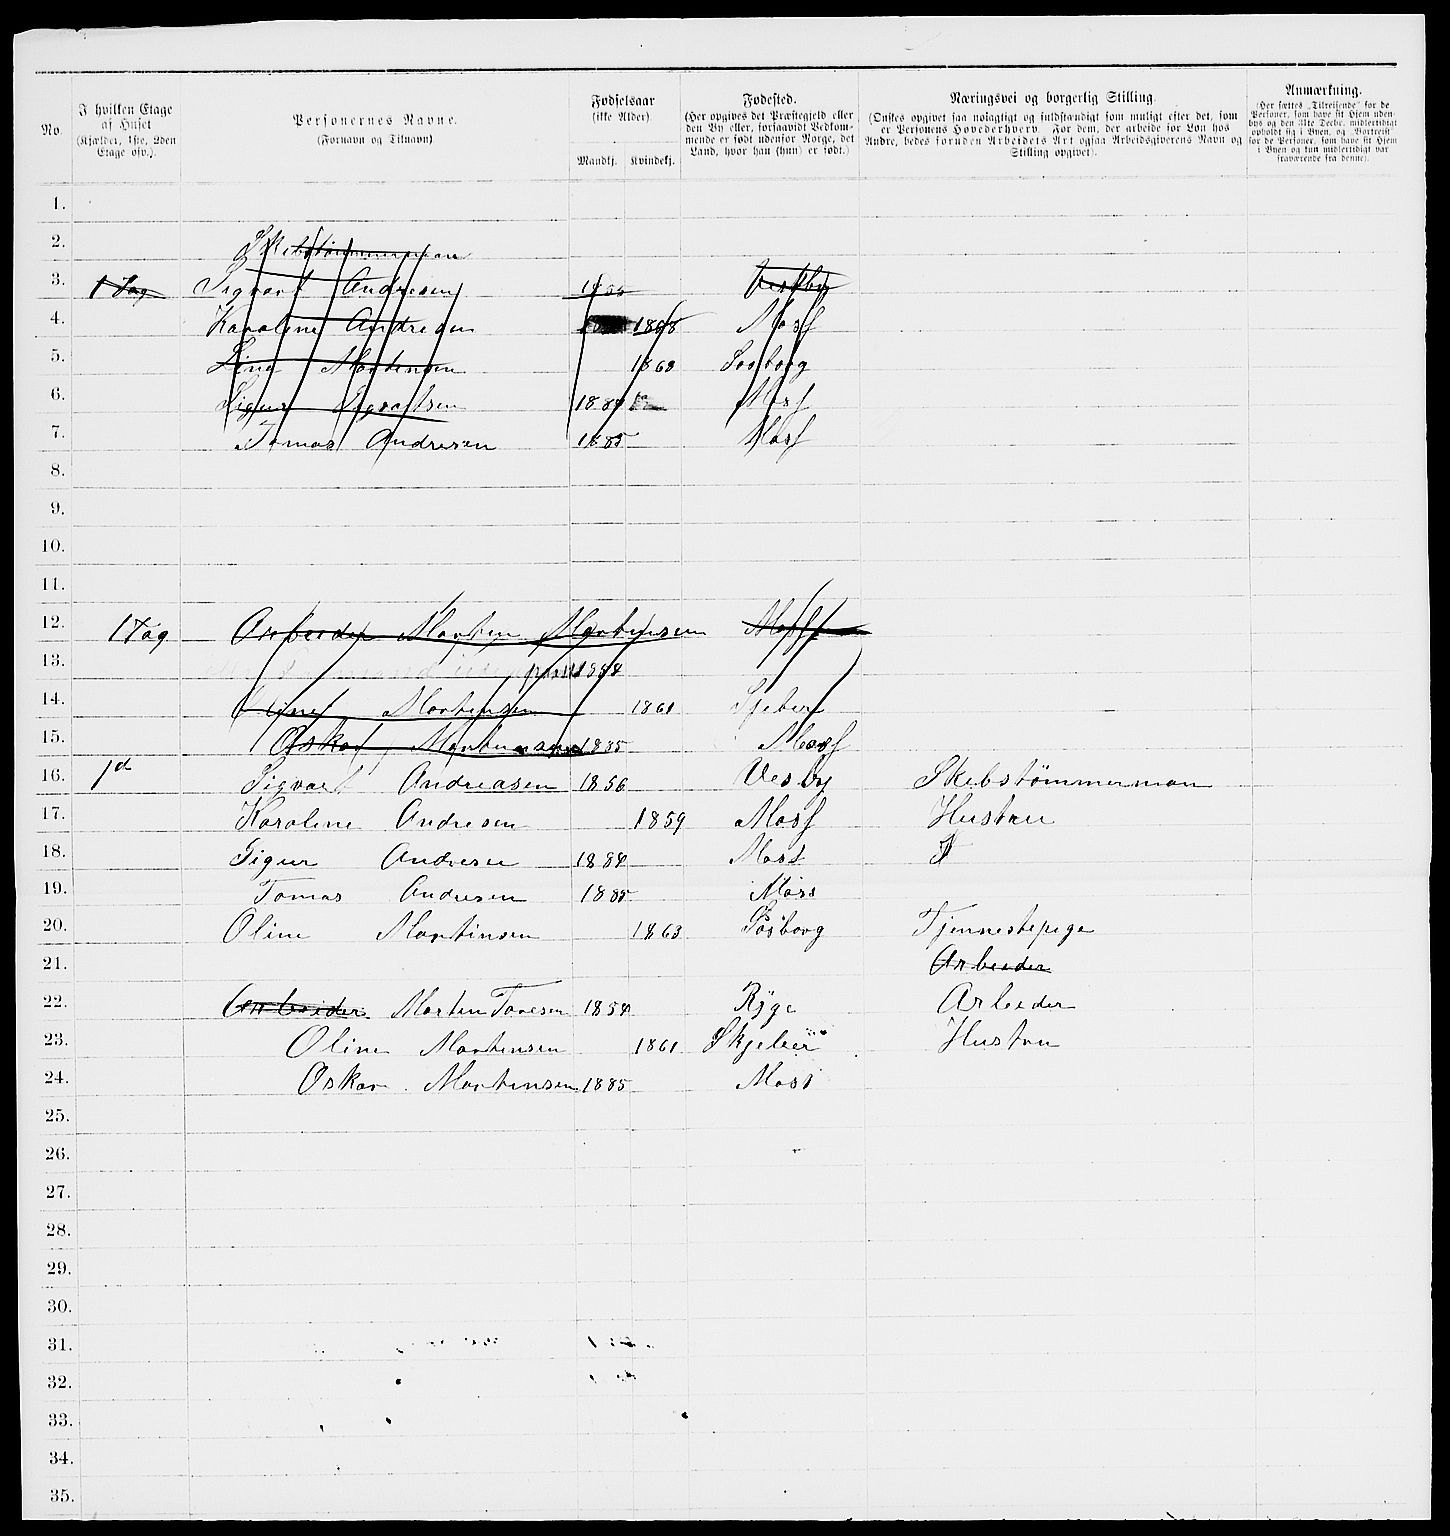 No.
I hvilken Etage af Huset (Kjælder, 1ste, 2den Etage osv.).
Personernes Navne. (Fornavn og Tilnavn).
Fødselsaar (ikke Alder).
Mandkj. Kvindekj.
Fødested. (Her opgives det Præstegjeld eller den By eller, forsaavidt Vedkommende er født udenfor Norge, det Land, hvor han (hun) er født.)
Næringsvei og borgerlig Stilling. (Ønskes opgivet saa nøiagtigt og fuldstændigt som muligt efter det, som er Personens Hovederhverv. For dem, der arbeide for Løn hos Andre, bedes foruden Arbeidets Art ogsaa Arbeidsgiverens Navn og Stilling opgivet).
Anmærkning. (Her sættes „Tilreisende“ for de Personer, som have sit Hjem udenbys og den 31te Decbr. midlertidigt opholdt sig i Byen, og „Bortreist“ for de Personer, som have sit Hjem i Byen og kun midlertidigt var fraværende fra denne).
1.
2. Skibstömmerman
3. 1 Tag Sigvart Andresen 1855 Vestby
4. Karoline Andresen 1858 Moss
5. Lina Mortensen 1863 Sosborg
6. Sigur Sigvartsen 1884 Moss
7. Tomas Andresen 1885 Moss
8.
9.
10.
11.
12. 1 Tag Arbeider Morten Mortensen Moss
13. 1854
14. Oline Mortensen 1861 Sjeber
15. Oskar 1885 Moss
16. 1 d Sigvart Andreasen 1856 Vesby Skebstömmerman
17. Karoline Andresen 1859 Moss Hustru
18. Sigur Andresen 1884 Moss
19. Tomas Andresen 1885 Moss
20. Oline Martinsen 1863 Sosborg Tjennestepige
21. Arbeider
22. Arbeider Morten Toresen 1854 Ryge Arbeder
23. Oline Mortensen 1861 Skjeber Hustru
24. Oskar Mortensen 1885 Moss
25.
26.
27.
28.
29.
30.
31.
32.
33.
34.
35.